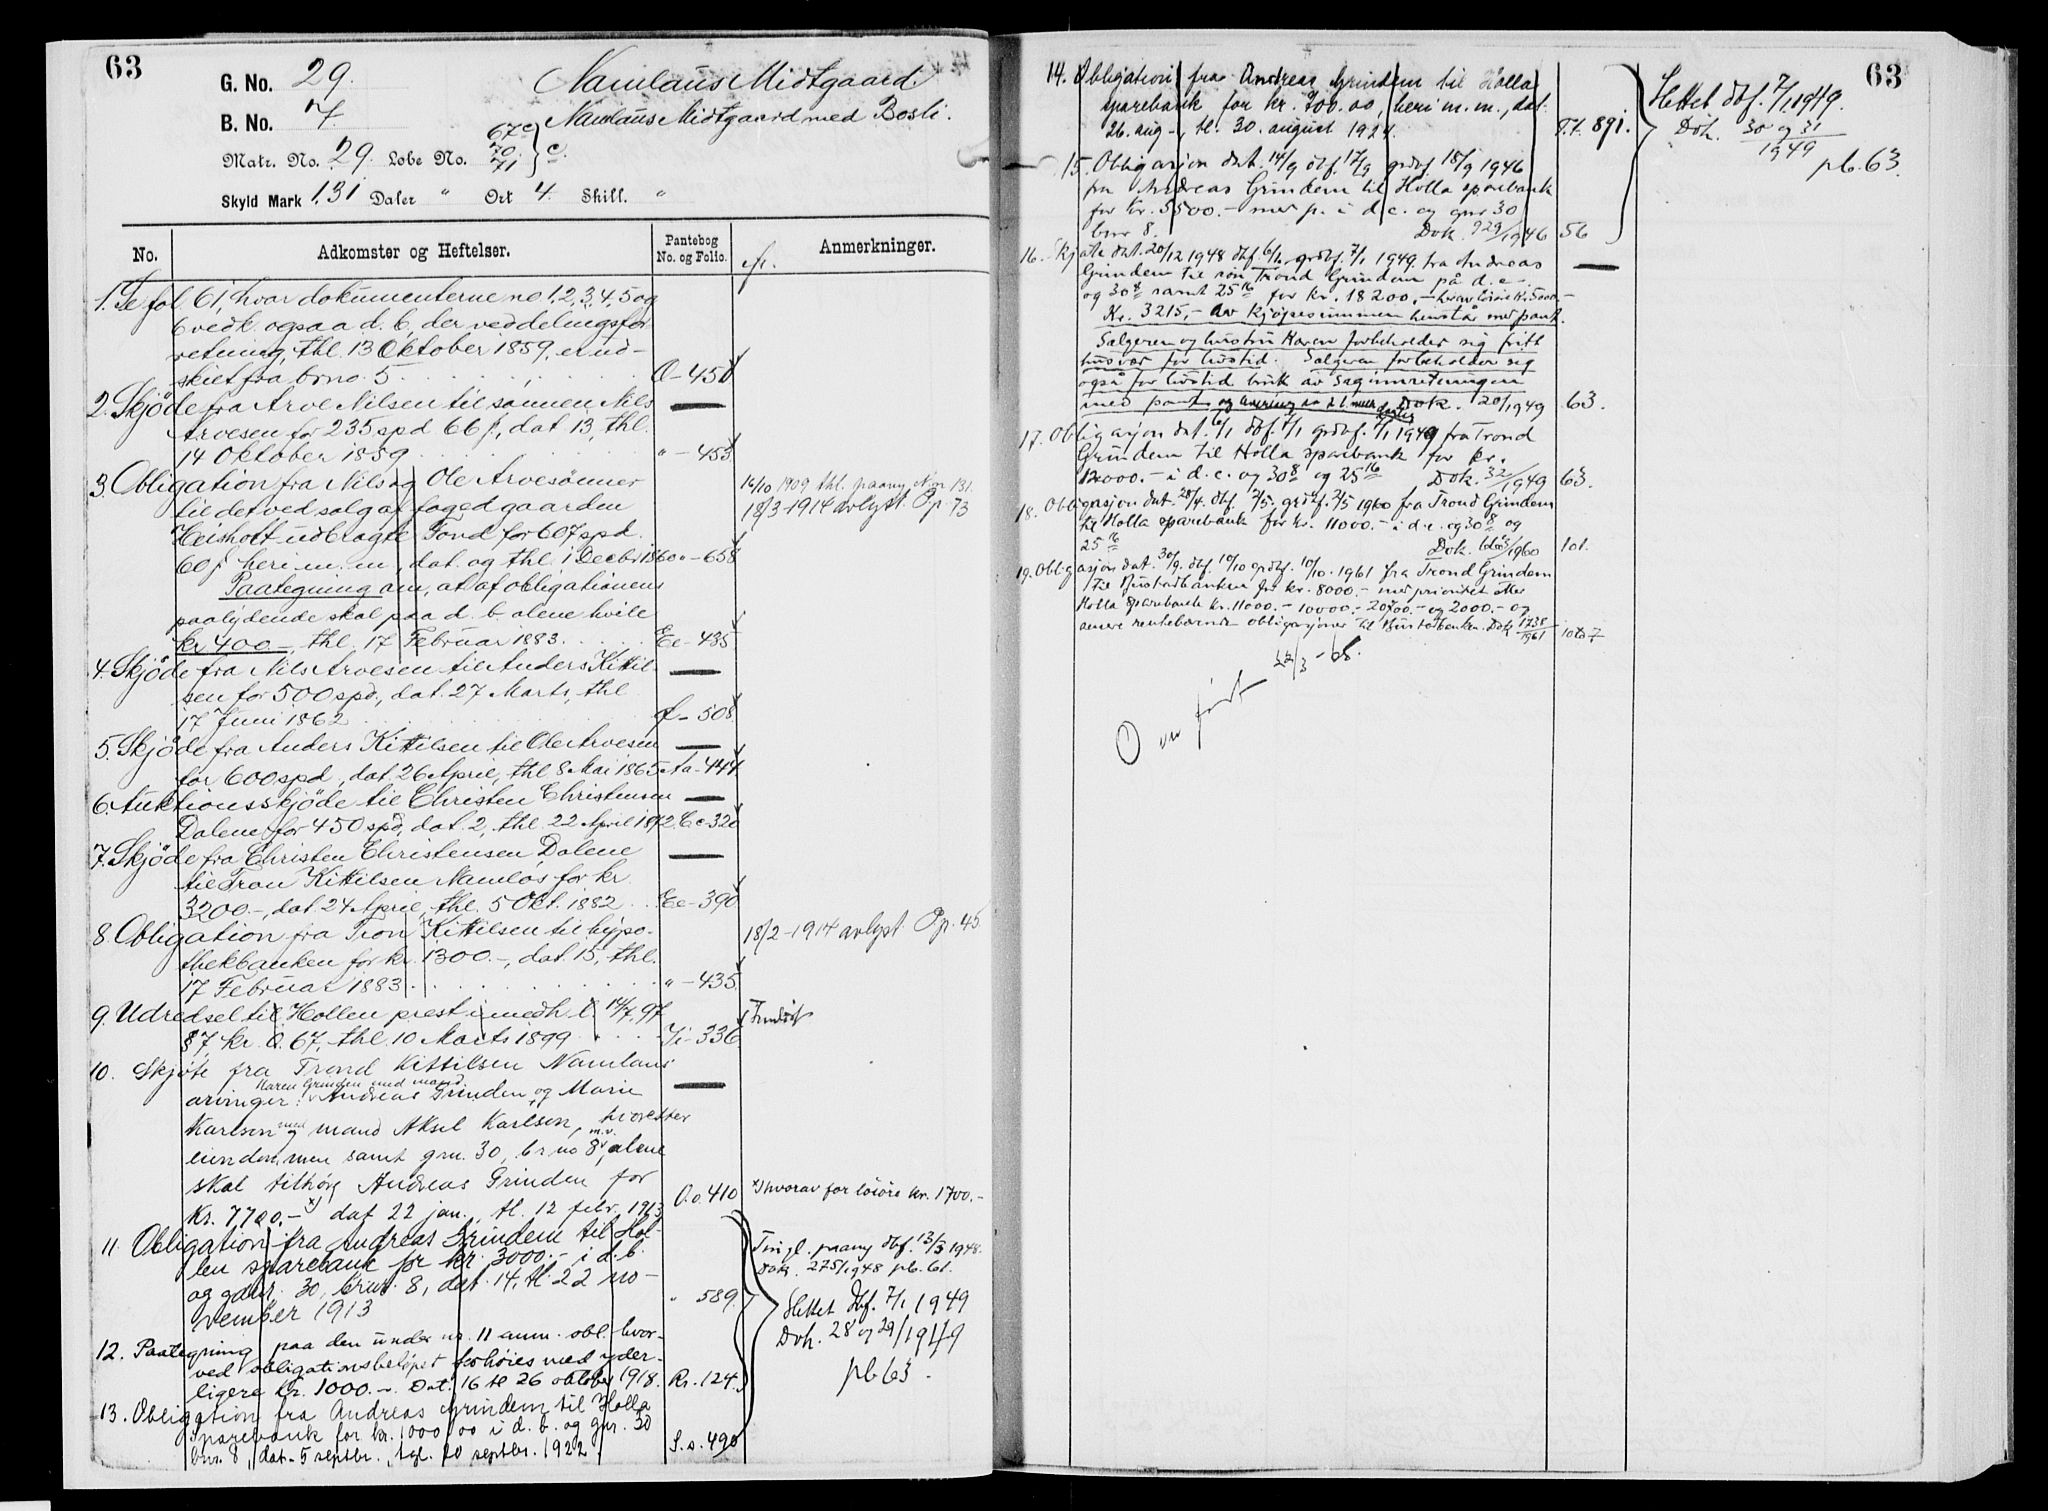 63
G. No. 29.
Namlaus Midtgaard
B. No. 7.
Namlaus Midtgaard med Bosli.
Matr. No. 29. Løbe No. 67c 70. 71 } c.
Skyld Mark 1,31 Daler " Ort 4. Skill. "
No. Adkomster og Heftelser. Pantebog No. og Folio. Anmerkninger.
1. Se fol 61, hvor dokumenterne no 1, 2, 3, 4, 5 og
6 vedk. ogsaa d. b. der ved delingsfor-
retning, thl. 13 Oktober 1859, er ud-
skilt fra brno. 5 O-450
2. Skjøde fra Arve Nilsen til sønnen Nils
Arvesen for 235 spd 66 ſ, dat 13, thl.
14 Oktober 1859 "-453
3. Obligation fra Nils og Ole Arvesønner
til det ved salg af fogedgaarden
Heisholt udbragte Fond for 607 spd.
60 ſ heri m. m., dat. og thl. 1 Decbr 1860 "-658
14/10 1909 thl. paany N.n 131.
18/3-1914 avlyst. Op. 73
Paategning om, at af obligationens
paalydende skal paa d. b. alene hvile
kr 400, thl. 17 Februar 1883. Ee-435
4. Skjøde fra Nils Arvesen til Anders Kittil-
sen for 500 spd., dat. 27 Marts, thl
17 Juni 1862 -508
5. Skjøde fra Anders Kittilsen til Ole Arvesen
for 600 spd., dat. 26 April, thl. 8 Mai 1865 Aa-444
6. Auktionsskjøde til Christen Christensen
Dalene for 450 spd, dat. 2, thl. 22 April 1872 Cc-320
7. Skjøde fra Christen Christensen Dalene
til Tron Kittilsen Namløs for kr
3200.-, dat. 24 April, thl. 5 Okt. 1882 Ee-390
8. Obligation fra Tron Kittilsen til hypo-
thekbanken for kr. 1300.-, dat. 15, thl.
17 Februar 1883 "-435
18/2-1914 avlyst. Op. 45
9. Udredsel til Hollen prest i medh. l. 14/7. 97
§ 7, kr. 0.67, thl. 10 Marts 1899 Ii-336
10. Skjøte fra Trond Kittilsen Namlaus
arvinger: Karen Grinden med mand Andreas Grinden og Marie
Karlsen med mand Aksel Karlsen, hvorefter
eiendommen samt gnr. 30, br no 8, m.v. alene
skal tilhøre Andreas Grinden for
Kr. 7,700.- x) dat 22 jan., tl. 12 febr. 1913 O.o. 410
x) hvorav for løsøre kr. 1700.-
11. Obligation fra Andreas Grindem til Hol-
len sparebank for kr. 3000.- i d. b.
og gdnr. 30, brnr. 8, dat. 14, tl. 22 no-
vember 1913 " 589.
Tingl. paany dbf. 13/3 1948.
Dok. 275/1948 pb. 61.
Slettet dbf. 7/1 1949
Dok. 28 og 29/1949
pb 63.
12. Paategning paa den under nr. 11 anm. obl. hvor-
ved obligationsbeløpet forhøies med yder-
ligere kr. 1000.-. Dat. 16 tl 26 oktober 1918. Rr. 124.
13. Obligation fra Andreas Grindem til Holla
Sparebank for kr. 1000,00 i d. b. og gnr. 30
bnr. 8, dat. 5 septbr., tgl. 20 septbr. 1922. S.s. 490
63
14. Obligation fra Andreas Grindem til Holla
sparebank for kr. 700.00, heri m. m., dat.
26. aug., tl. 30. august 1924. T.t. 891.
Slettet dbf. 7/1 1949.
Dok. 30 og 31/1949
pb. 63.
15. Obligasjon dat. 14/9 dbf. 17/9 grdbf. 18/9 1946
fra Andreas Grindem til Holla sparebank
for kr. 5500.- med p. i d. e. og gnr 30
bnr 8. Dok. 929/1946 56
16. Skjøte dat. 20/12 1948 dbf. 6/1 grdbf. 7/1 1949 fra Andreas
Grindem til søn Trond Grindem på d. e.
og 30 8 samt 25 16 for kr. 18 200.- herav løsøre kr. 5000.-
Kr. 3215,- av kjøpesummen henstår med pant.
Selgeren og hustru Karen forbeholder sig fritt
husvær for livstid. Selgeren forbeholder sig
også for livstid bruk av saginnretningen
Dok. 20/1949 63.
17. Obligasjon dat. 6/1 dbf. 7/1 grdbf. 7/1 1949 fra Trond
Grindem til Holla sparebank for kr.
12000.- i d. e. og 30 8 og 25 16 Dok. 32/1949 63.
18. Obligasjon dat. 28/4. dbf. 2/5. grdbf. 2/5 1960 fra Trond Grindem
til Holla sparebank for kr. 11000.- i d. e. og 30 8 og
25 16 1960 101.
19. Obligasjon dat. 30/9. dbf. 10/10 grdbf. 10/10. 1961 fra Trond Grindem
til Husbadbanken for kr. 8000.- med prioritet etter
Holla sparebank kr. 11000.- 10000.- 20700.- og 2000.- og
senere rentebærende obligasjoner til Husbanken. Dok 1738/1961
Overført 22/3-68.